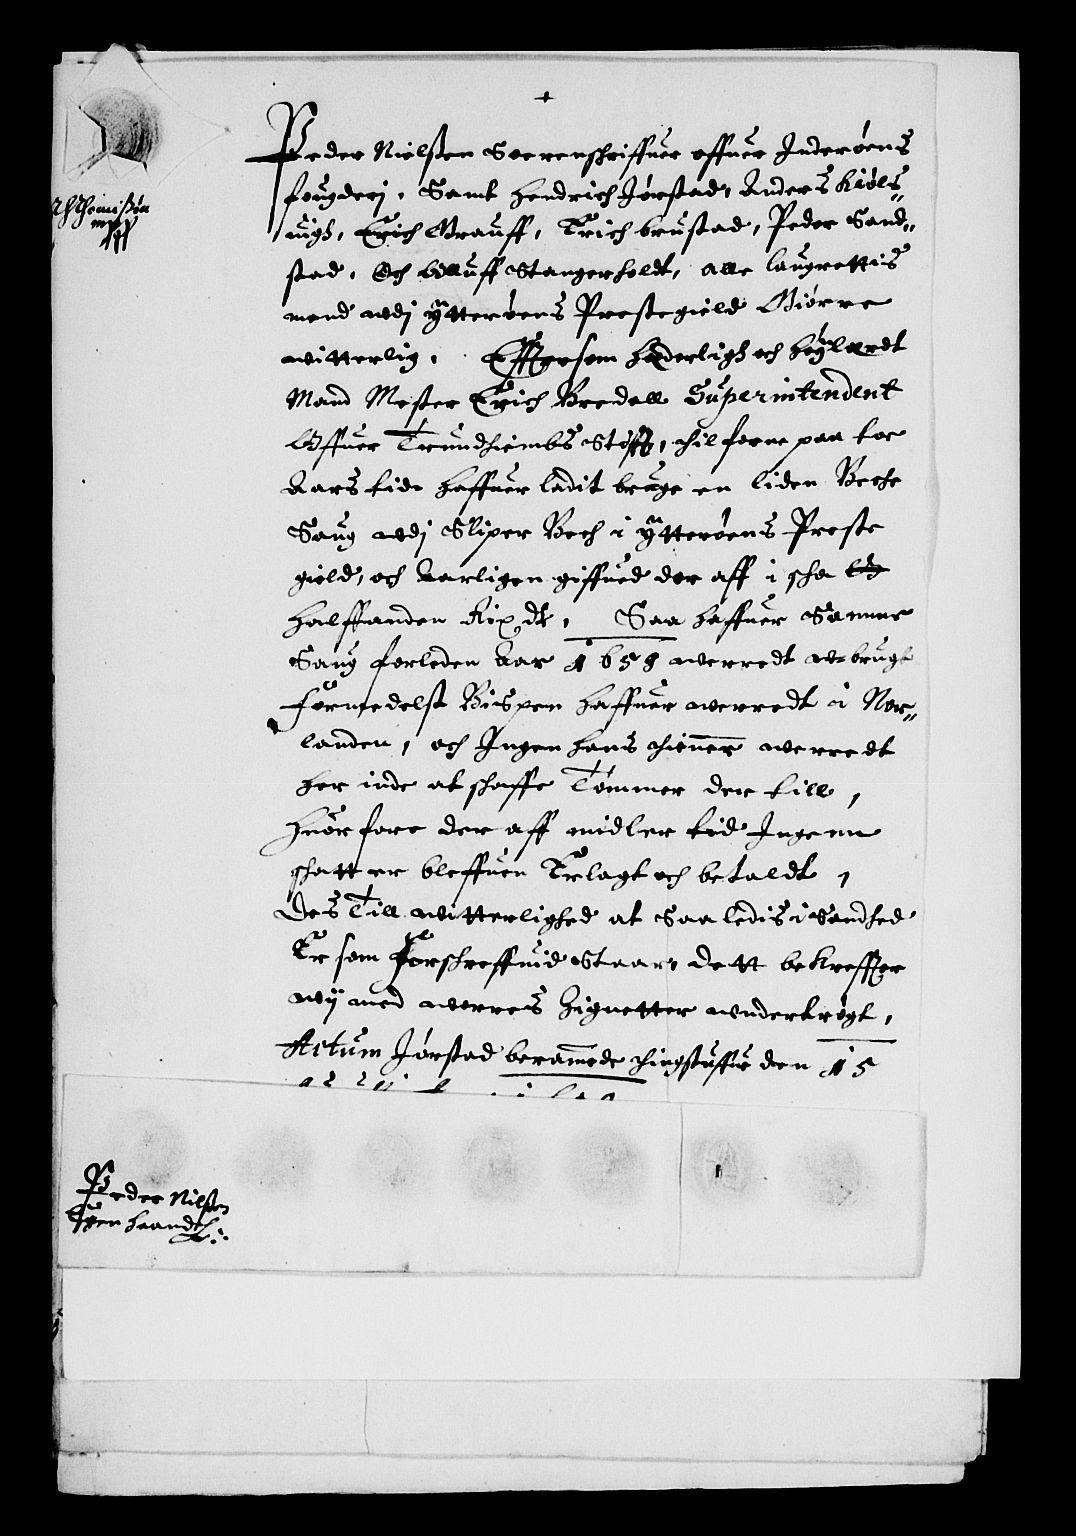 Peder Nielsten Soerenschriffuer offuer Inderøens
fougderj, Samt Hendrich Jørstad, Anders Kiøls-
uigh, Erich Grauff, Erich brustad, Peder Sand-
stad, Och Olluff Stangerholdt, alle laugrettis
mend wdj Ÿtterøens Prestegield Giørre
witterlig, Effttersom hæderligh och høylærdt
Mand Mester Erich Bredall Superintendent
Offuer Trundhiembs Stifft, thilforne paa toe
Aars tid haffuer ladit bruge en liden Beche
Saug wdj Sliper Bech i Ÿtterøens Preste
gield, och Aarligen giffued der aff i scha
halffanden Rixdr, Saa haffuer Samme
Saug forleden Aar 1658 werredt wbrugt
formedelst Bispen haffuer werredt i Nor-
landen, och Ingen hans thienner werredt
her inde at schaffe Tømmer der till,
huorfore der aff midler tid Ingenn
schatter bleffuen Erlagt och betaldt,
Des Till witterlighed at Saaledis i Sandhed
Er som forschreffuid Staar, dett bekreffter
wÿ med worres Zignetter wndertrögt,
Actum Jørstad beramede thingstuffue den 15
Peder Nilsten
Egen haandt